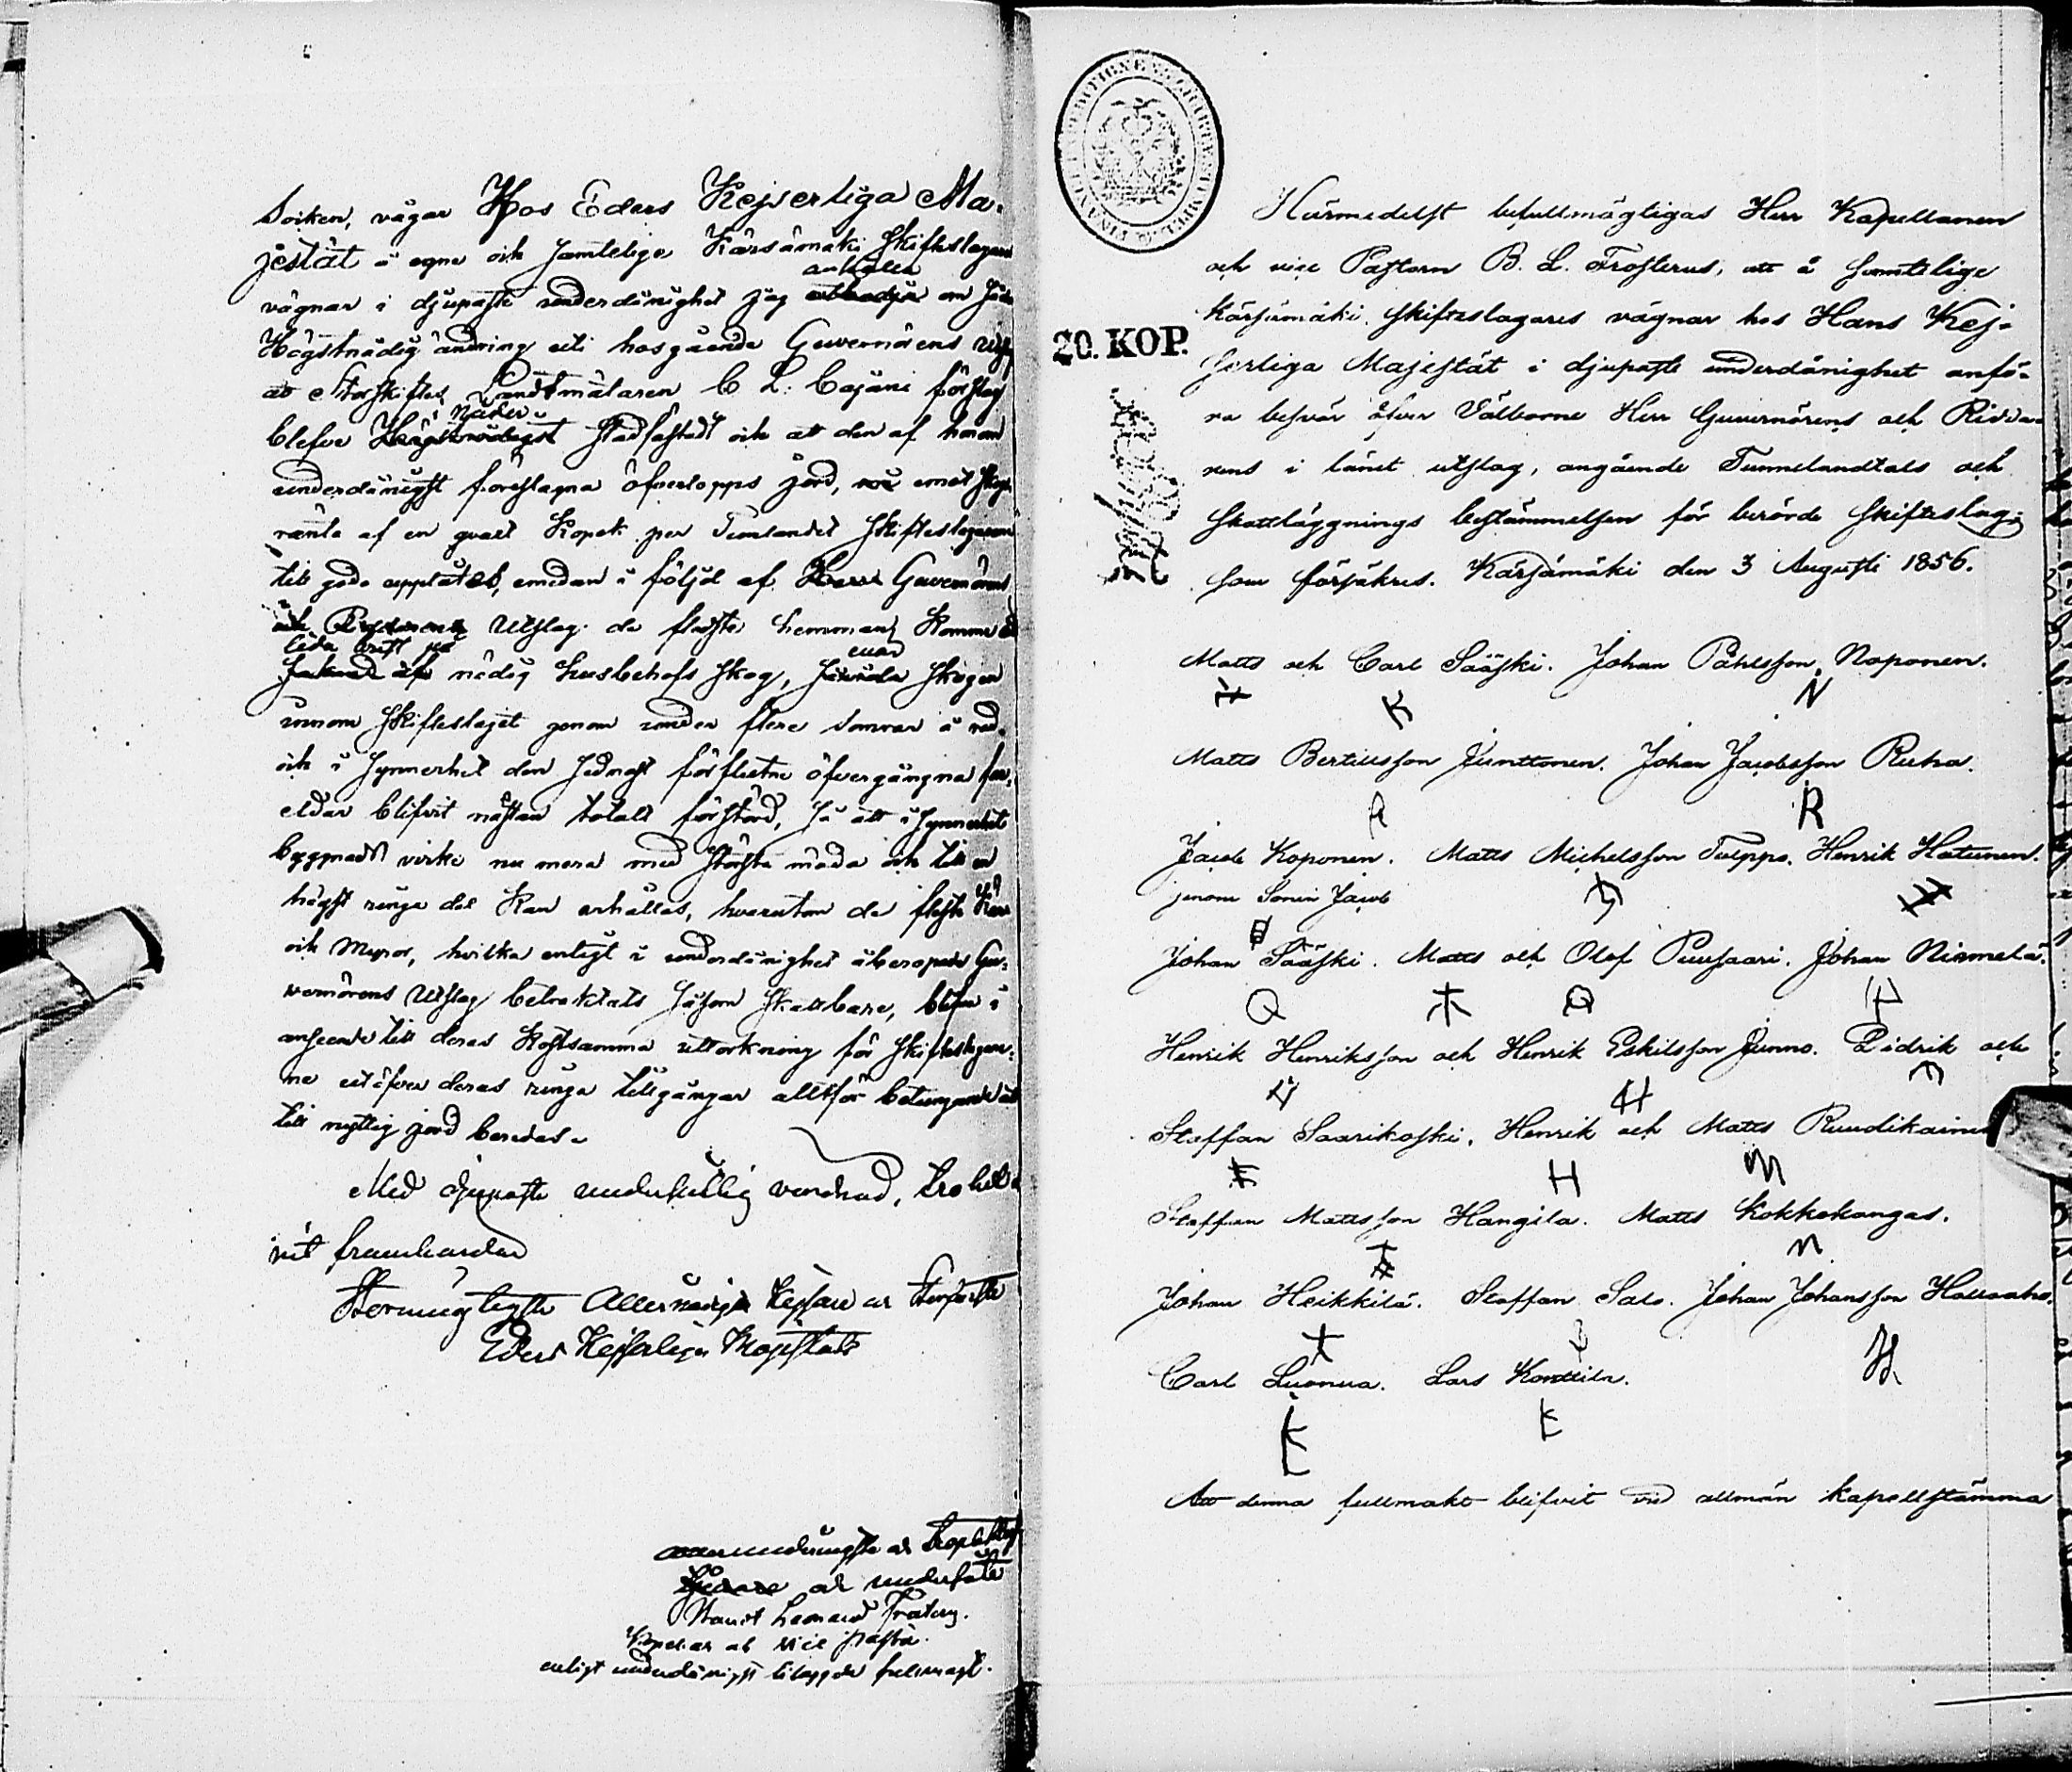 Socken, vågar Hos Eders Kejserliga Ma-
jestät å egne och samtelige Kärsämäki Skifteslagets
anhålla
vägnar i djupaste underdånighet jag utbedja om
Högstnådig ändring uti hosgående Guvernörens
at Storskiftes Landtmätaren C L: Cajani förslag
Nåder
blefve Högstnådigst stadfästadt och att den af honom
underdånigst föreslagna öfverlopps jord, emot
ränta af en qvart Kopek per Tunlandet Skifteslagarne
till godo upplåtes, emedan i följd af Herr Guvernörens
och Riddarens Utslag de flesta hemman Komma
lida brist på
Saknad af nödig husbehofs skog, skogen
innom Skifteslaget genom under flere somrar å rad
och i synnerhet den sednast förflutne öfvergångna
eldar blifvit nästan totalt förstörd, så att i synnerhet
byggnads virke nu mera med största möda och till en
högst ringa del Kan erhållas, hvarutom de flesta Kärr
och Myror, hvilka enligt i underdånighet åberopade Gu-
vernörens Utslag betraktats såsom skattbare, blifva i
anseende till deras Kostsamma uttorkning för Skifteslagar-
ne utöfver deras ringa tillgångar alltför betungande att
till nyttig jord beredas.
Med djupaste undersåtlig vördnad,
framhärdar
Stormägtigste Allernådigste Kejsare och Storfurste
Eders Kejserliga Majestäts
allerunderdånigste och
och undersåte
Kapellan och vice pastor
enligt underdånigst bilagde fullmagt.
20. KOP.
Härmedelst befullmägtigas Herr Kapellanen
och vice Pastorn B. L. Frosterus, att å samtelige
Kärsämäki Skifteslagares vägnar hos Hans Kej-
serliga Majestät i djupaste underdånighet anfö-
ra besvär öfver Välborne Herr Guvernörens och Ridda-
rens i länet utslag, angående Tunnelandtals och
skattläggnings bestämmelsen för berörde skifteslag;
som försäkres. Kärsämäki den 3 Augusti 1856.
Matts och Carl Sääski. Johan Påhlsson Noponen.
K N
Matts Bertilsson Junttonen. Johan Jacobsson Ruha.
R
Jacob Koponen. Matts Michelsson Tulppo. Henrik Hatunen.
genom Sonen Jacob
Johan Sääski. Matts och Olof Puusaari. Johan Nirmelä.
Henrik Henriksson och Henrik Eskilsson Junno. Didrik och
Staffan Saarikoski, Henrik och Matts
H M
Staffan Mattsson Hangila. Matts Kokkokangas.
Johan Heikkilä. Staffan Salo. Johan Johansson
H
Carl Luonua. Lars Konttila.
Att denna fullmakt blifvit vid allmän Kapellstämma